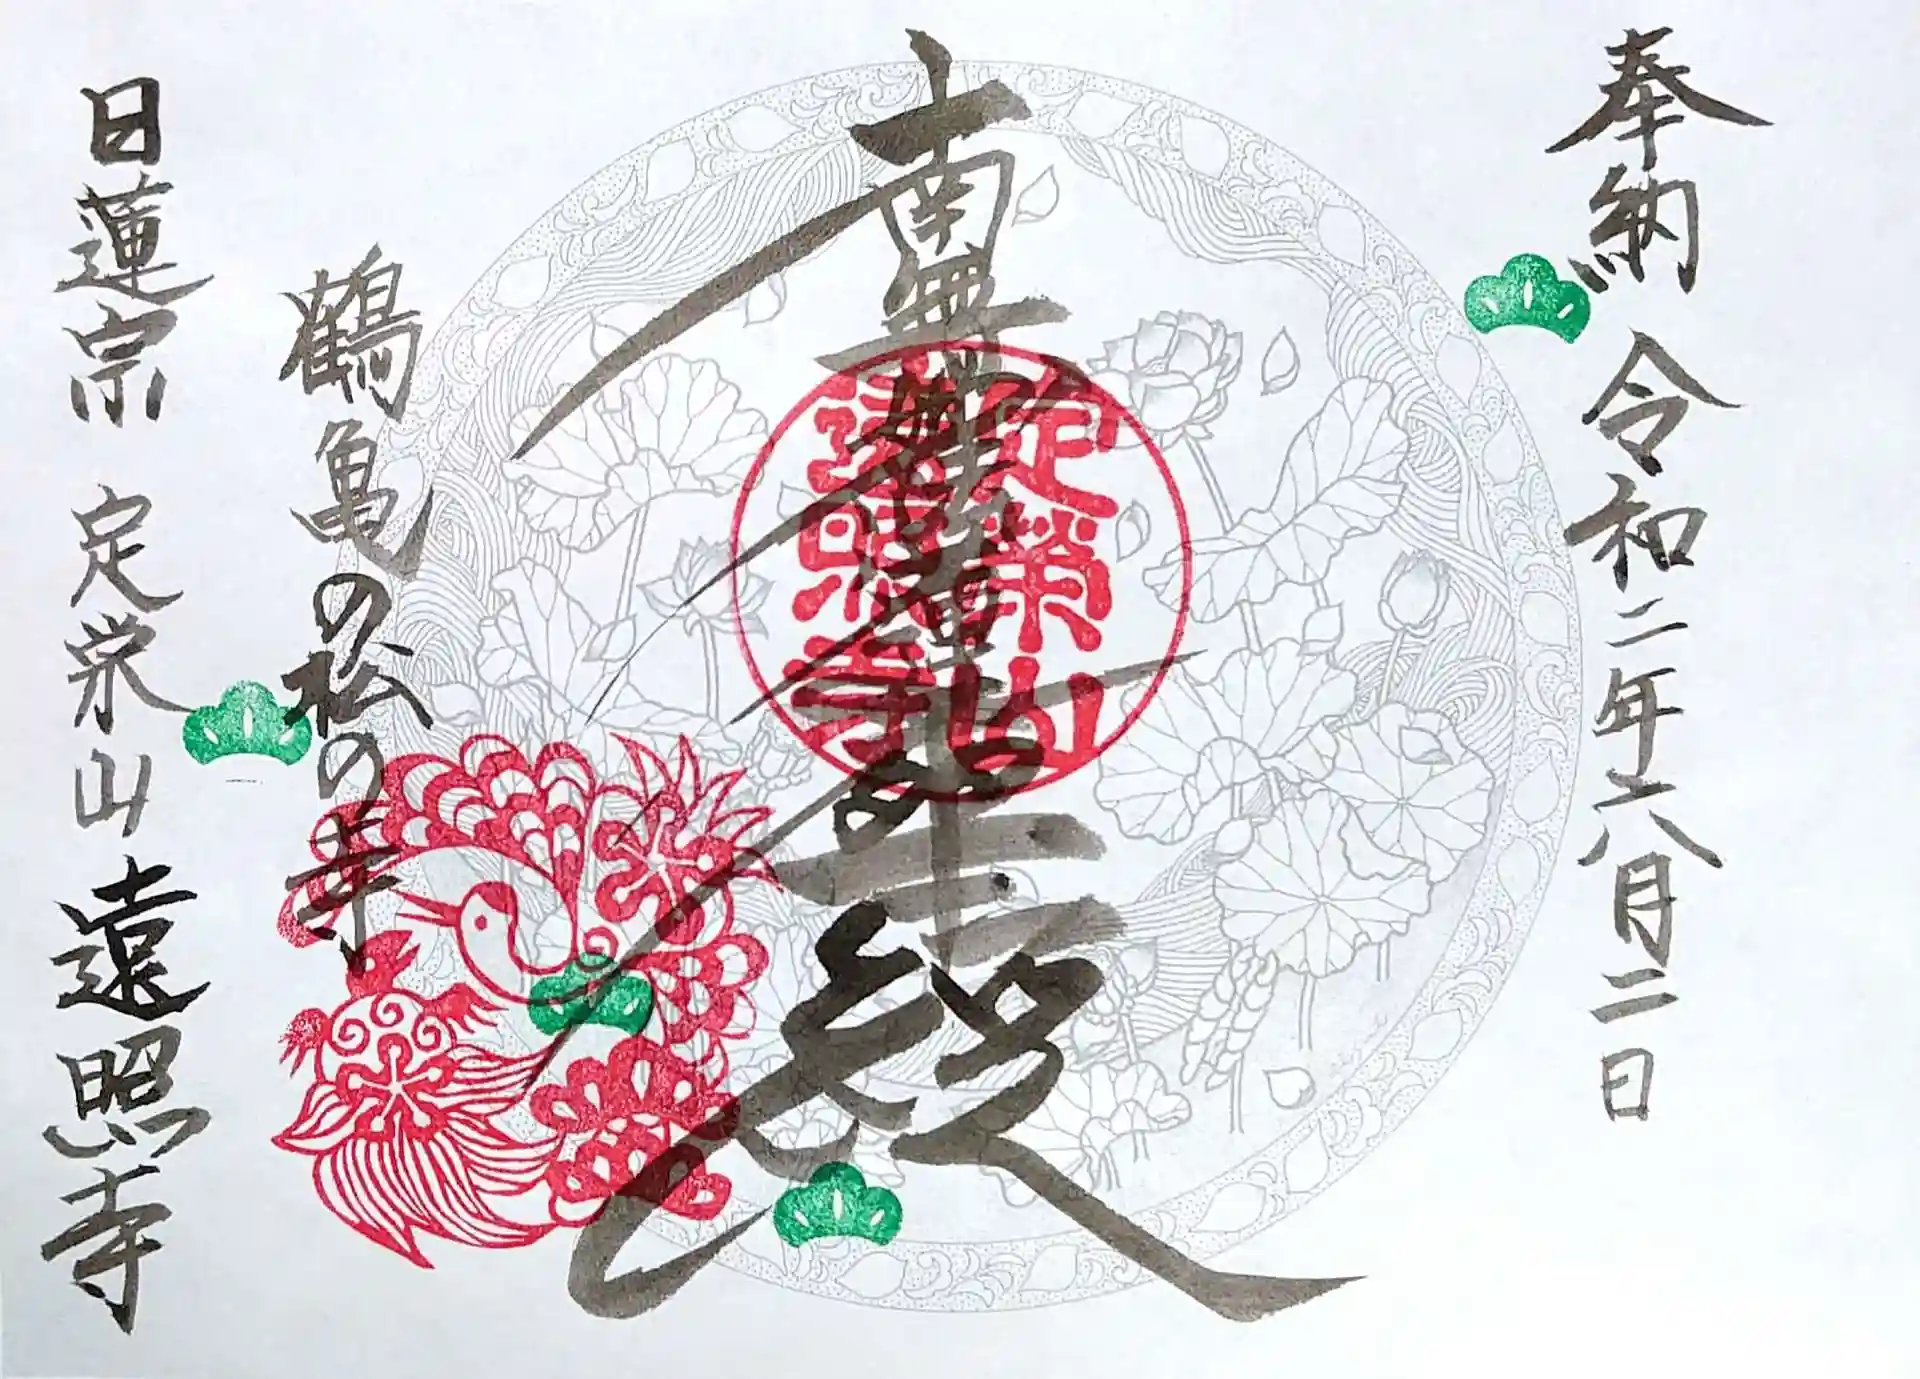 奉納 令和二年六月二日
南無妙法蓮華経
定榮山
遠照寺
鶴亀の松の寺
日蓮宗 定栄山 遠照寺